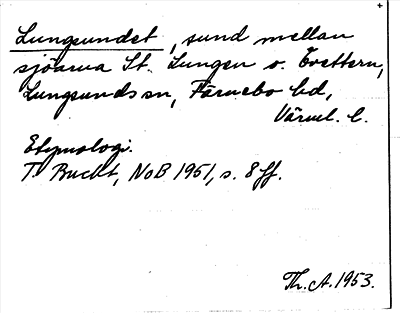 Lungsundet, sund mellan
sjöarna St. Lungen o. Östtern,
Lungsunds sn, Färnebo hd,
Värml. l.
Etymologi.
T. Bucht, NoB 1951, s. 8 ff.
Th. A. 1953.